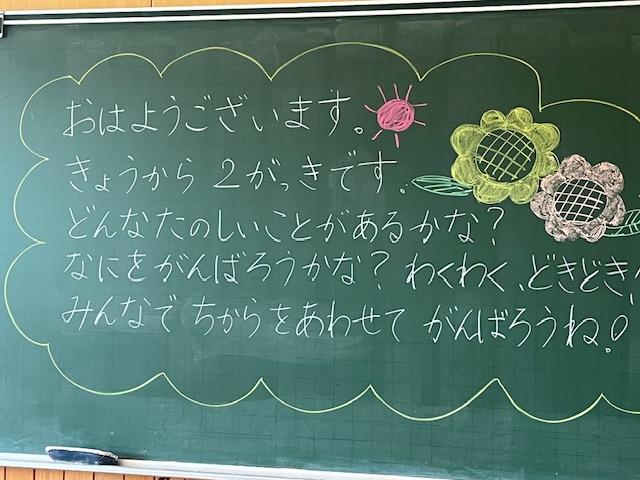 おはようございます。
きょうから 2がっきです。
どんなたのしいことがあるかな?
なにをがんばろうかな? わくわく、どきどき、
みんなで ちからをあわせて がんばろうね!